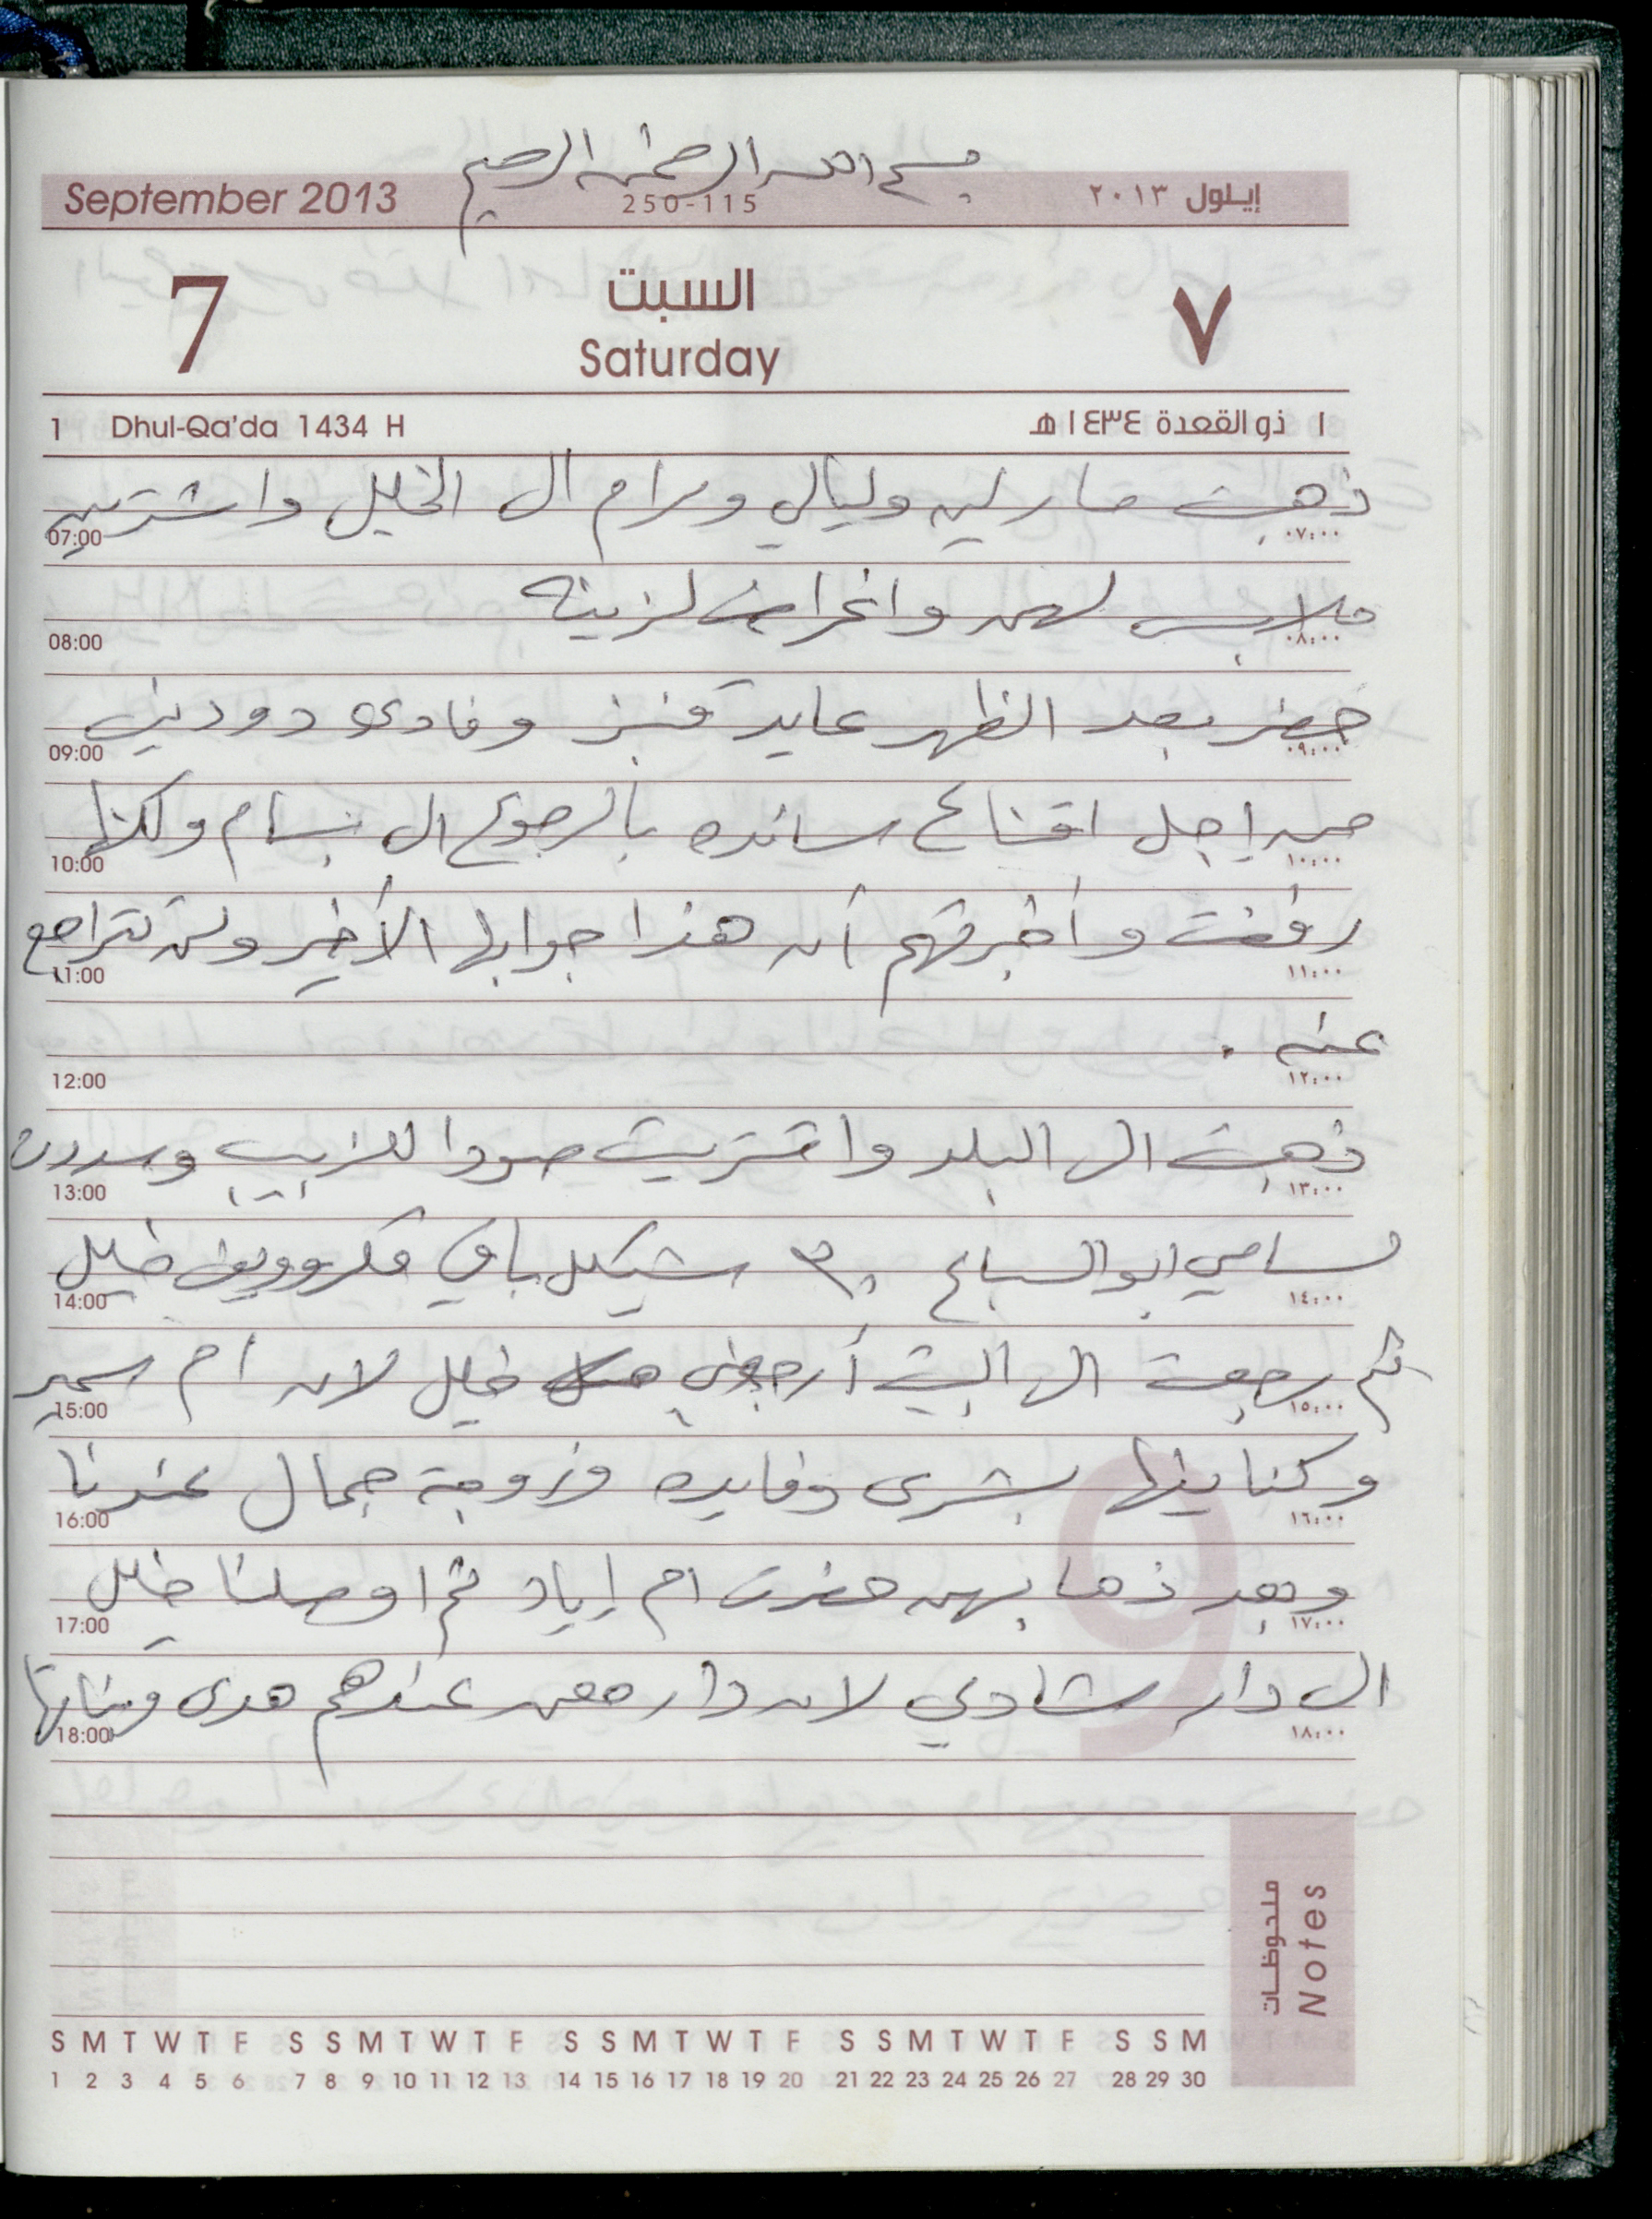 بسم الله الرحمن الرحيم
September 2013 250-115 إيلول ٢٠١٣
7 السبت ٧
Saturday
1 Dhul-Qa'da 1434 H ١ ذو القعدة ١٤٣٤ هـ
ذهبت مارلين وليالي ومرام الى الخليل واشترين
07:00 ٠٧:٠٠
ملابس لهن واغراض لزينه
08:00 ٠٨:٠٠
حضر بعد الظهر عايد قنبز وفادي دودين
09:00 ٠٩:٠٠
من اجل اقناع سانده بالرجوع الى بسام ولكنها
10:00 ١٠:٠٠
رفضت وأخبرتهم أن هذا جوابها الأخير ولن تتراجع
11:00 ١١:٠٠
عنه .
12:00 ١٢:٠٠
ذهبت الى البلد واشتريت صودا للزبيب وسددت
13:00 ١٣:٠٠
لسامي ابو السباع ٣٠ شيكل باقي مكروويف خليل
14:00 ١٤:٠٠
ثم رجعت الى البيت أرجعني خليل لان ام سمير
15:00 ١٥:٠٠
وكناينها بشرى وفايده وزوجة جمال عندنا
16:00 ١٦:٠٠
وبعد ذهابهن حضرت ام إياد ثم اوصلنا خليل
17:00 ١٧:٠٠
الى دار شادي لان دار معن عندهم هدى وبناتها
18:00 ١٨:٠٠
9
ملحوظات
Notes
S M T W T F S S M T W T F S S M T W T F S S M T W T F S S M
1 2 3 4 5 6 7 8 9 10 11 12 13 14 15 16 17 18 19 20 21 22 23 24 25 26 27 28 29 30